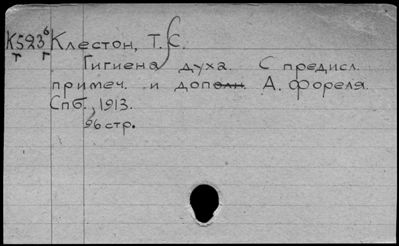 К523б Клестон, Т. С.
т г
Гигиена духа. С предисл.
примеч. и дополн. А. Фореля.
Спб., 1913.
96 стр.